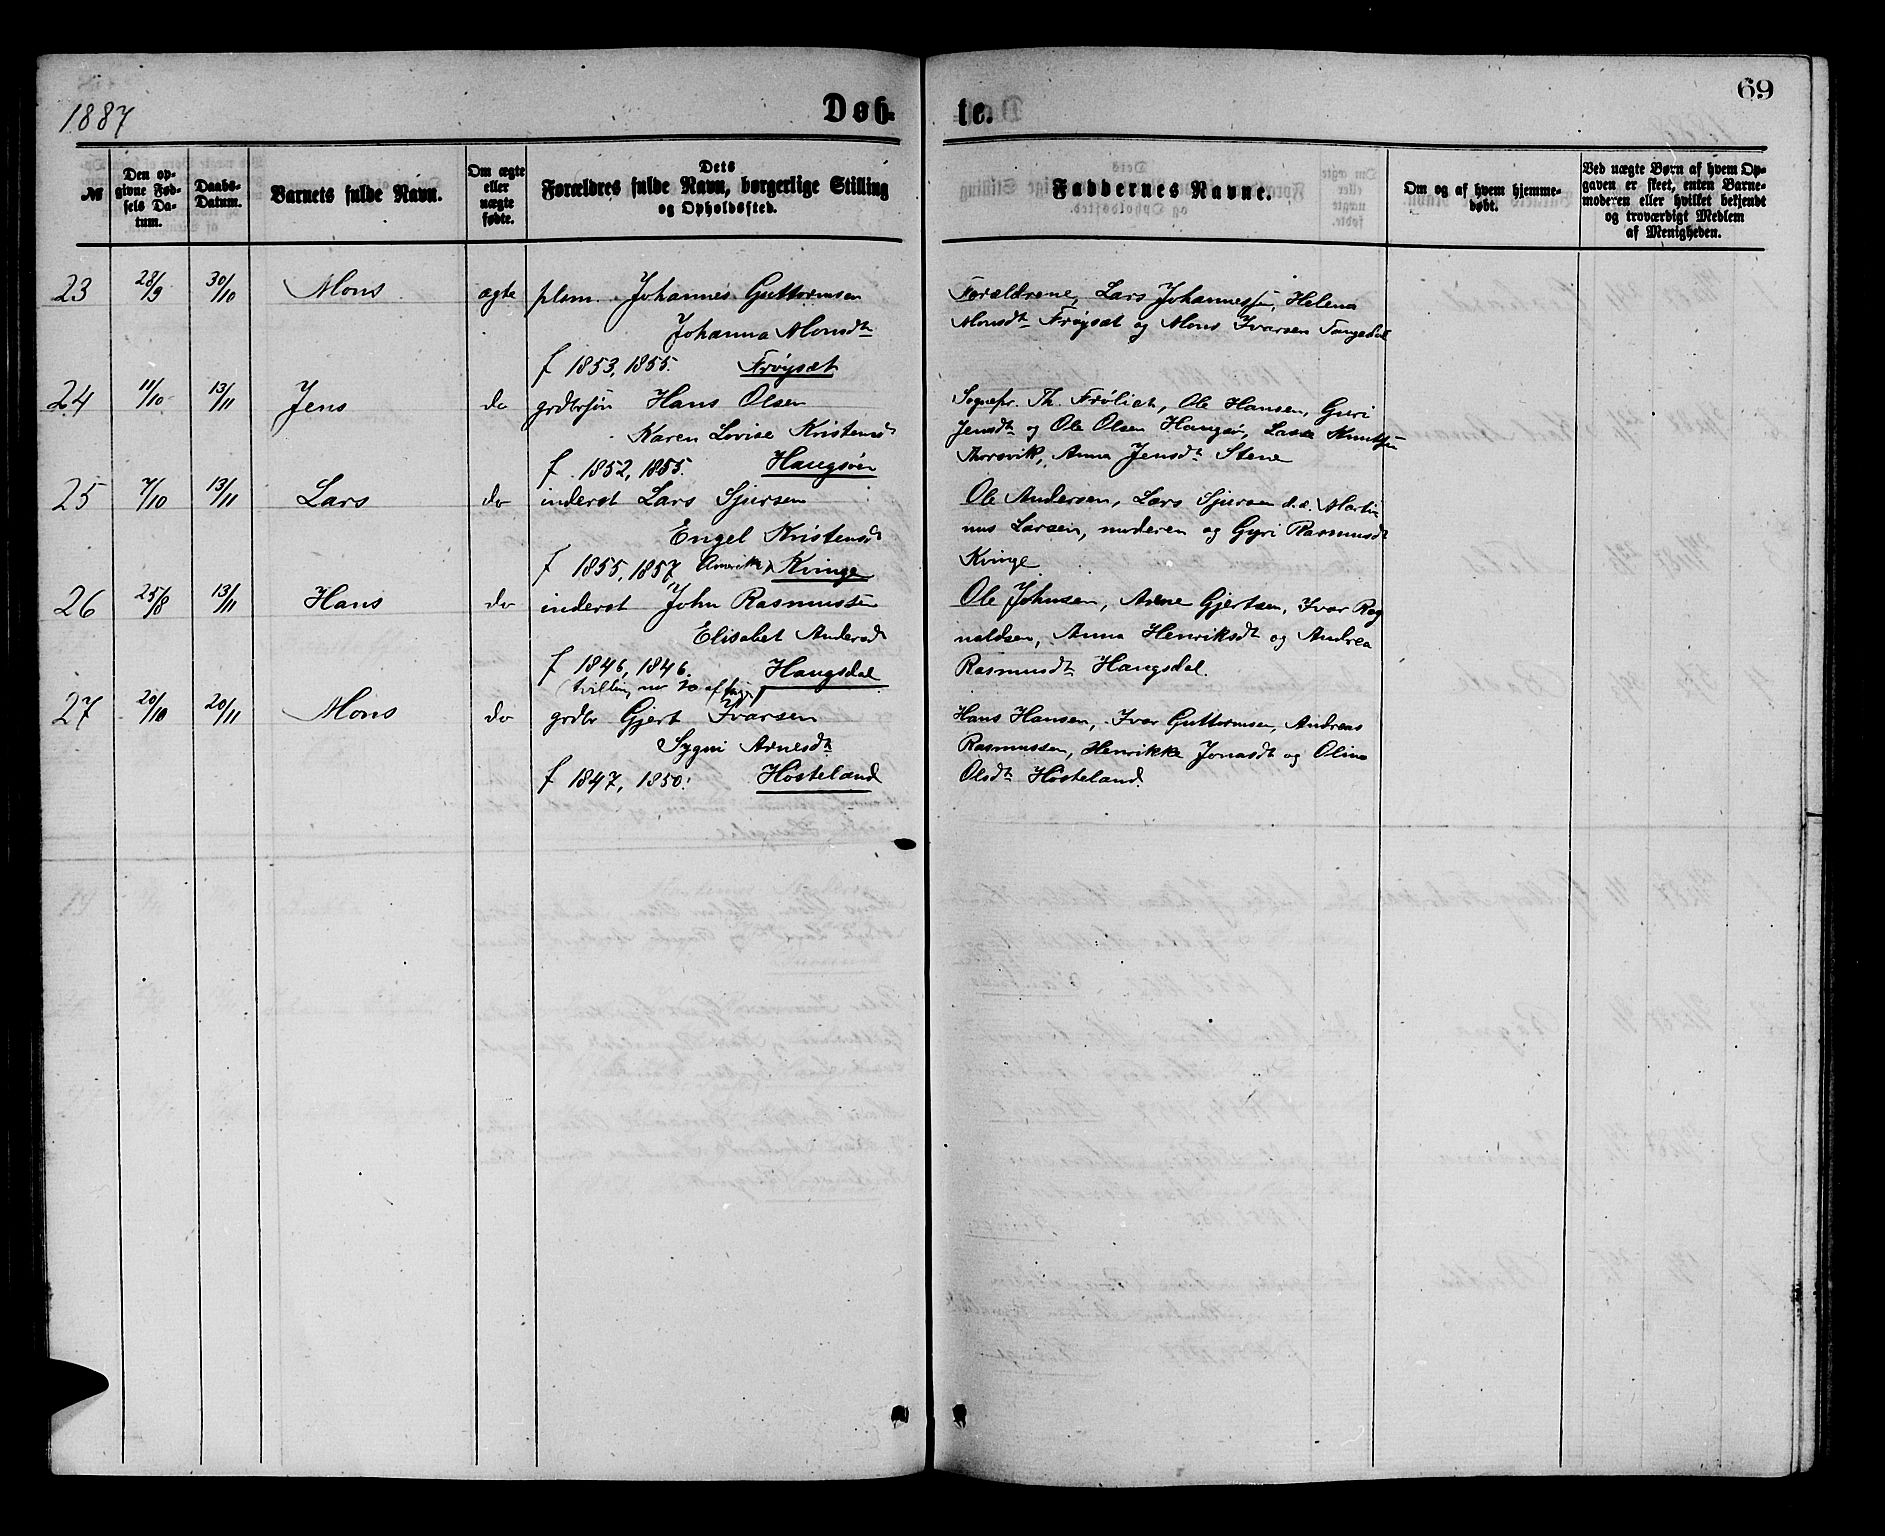 1887 Døb- te. 69
№
Den opgivne Fødsels Datum.
Daabs-Datum.
Barnets fulde Navn.
Om ægte eller uægte fødte.
Dets Forældres fulde Navn, borgerlige Stilling og Opholdssted.
Faddernes Navne.
Om og af hvem hjemmedøbt.
Ved uægte Børn af hvem Opgaven er skeet, enten Barnemoderen eller hvilket bekjendt og troværdigt Medlem af Menigheden.
23 28/9 30/10 Mons ægte plsm. Johannes Guttormsen
Johanna Monsdt
f 1853, 1855. Frøysæt
Forældrene, Lars Johannessen, Helena
Monsdt Frøysæt og Mons Ivarsen Tangedal
24 11/10 13/11 Jens do grdbrsøn Hans Olsen
Karen Lovise Kristensd
f. 1852, 1855. Haugsøen
Sognepr. Th. Frølich, Ole Hansen, Guri
Jensdt og Ole Olsen Haugsø, Lasse Knutsen
Thorsvik, Anna Jensdt Stene
25 7/10 13/11 Lars do inderst Lars Sjursen
Engel Kristensdt
f 1855, 1857, Amerika) Kvinge
Ole Andersen, Lars Sjursen d.e. Marti-
nus Larsen, moderen og Gyri Rasmusdt
Kvinge
26 25/8 13/11 Hans do inderst John Rasmussen
Elisabet Andersdt
f 1846, 1846. Haugsdal
Ole Johnsen, Arne Gjertsen, Ivar Rag-
naldsen, Anna Henriksdt og Andrea
Rasmusdt Haugsdal.
(tvilling no
27 20/10 20/11 Mons do grdbr Gjert Ivarsen
Sygni Arnesdt
f 1847, 1850. Hosteland
Hans Hansen, Ivar Guttormsen, Andreas
Rasmussen, Henrikke Jonasdt og Olina
Olsdt Hosteland.